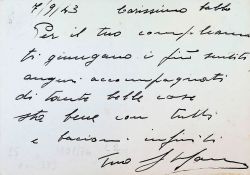 7/9/43 Carissimo babbo
Per il tuo compleanno
ti giungano i più sentiti
auguri accompagnati
di tante belle cose
sta bene con tutti
e bacioni infiniti
Tuo